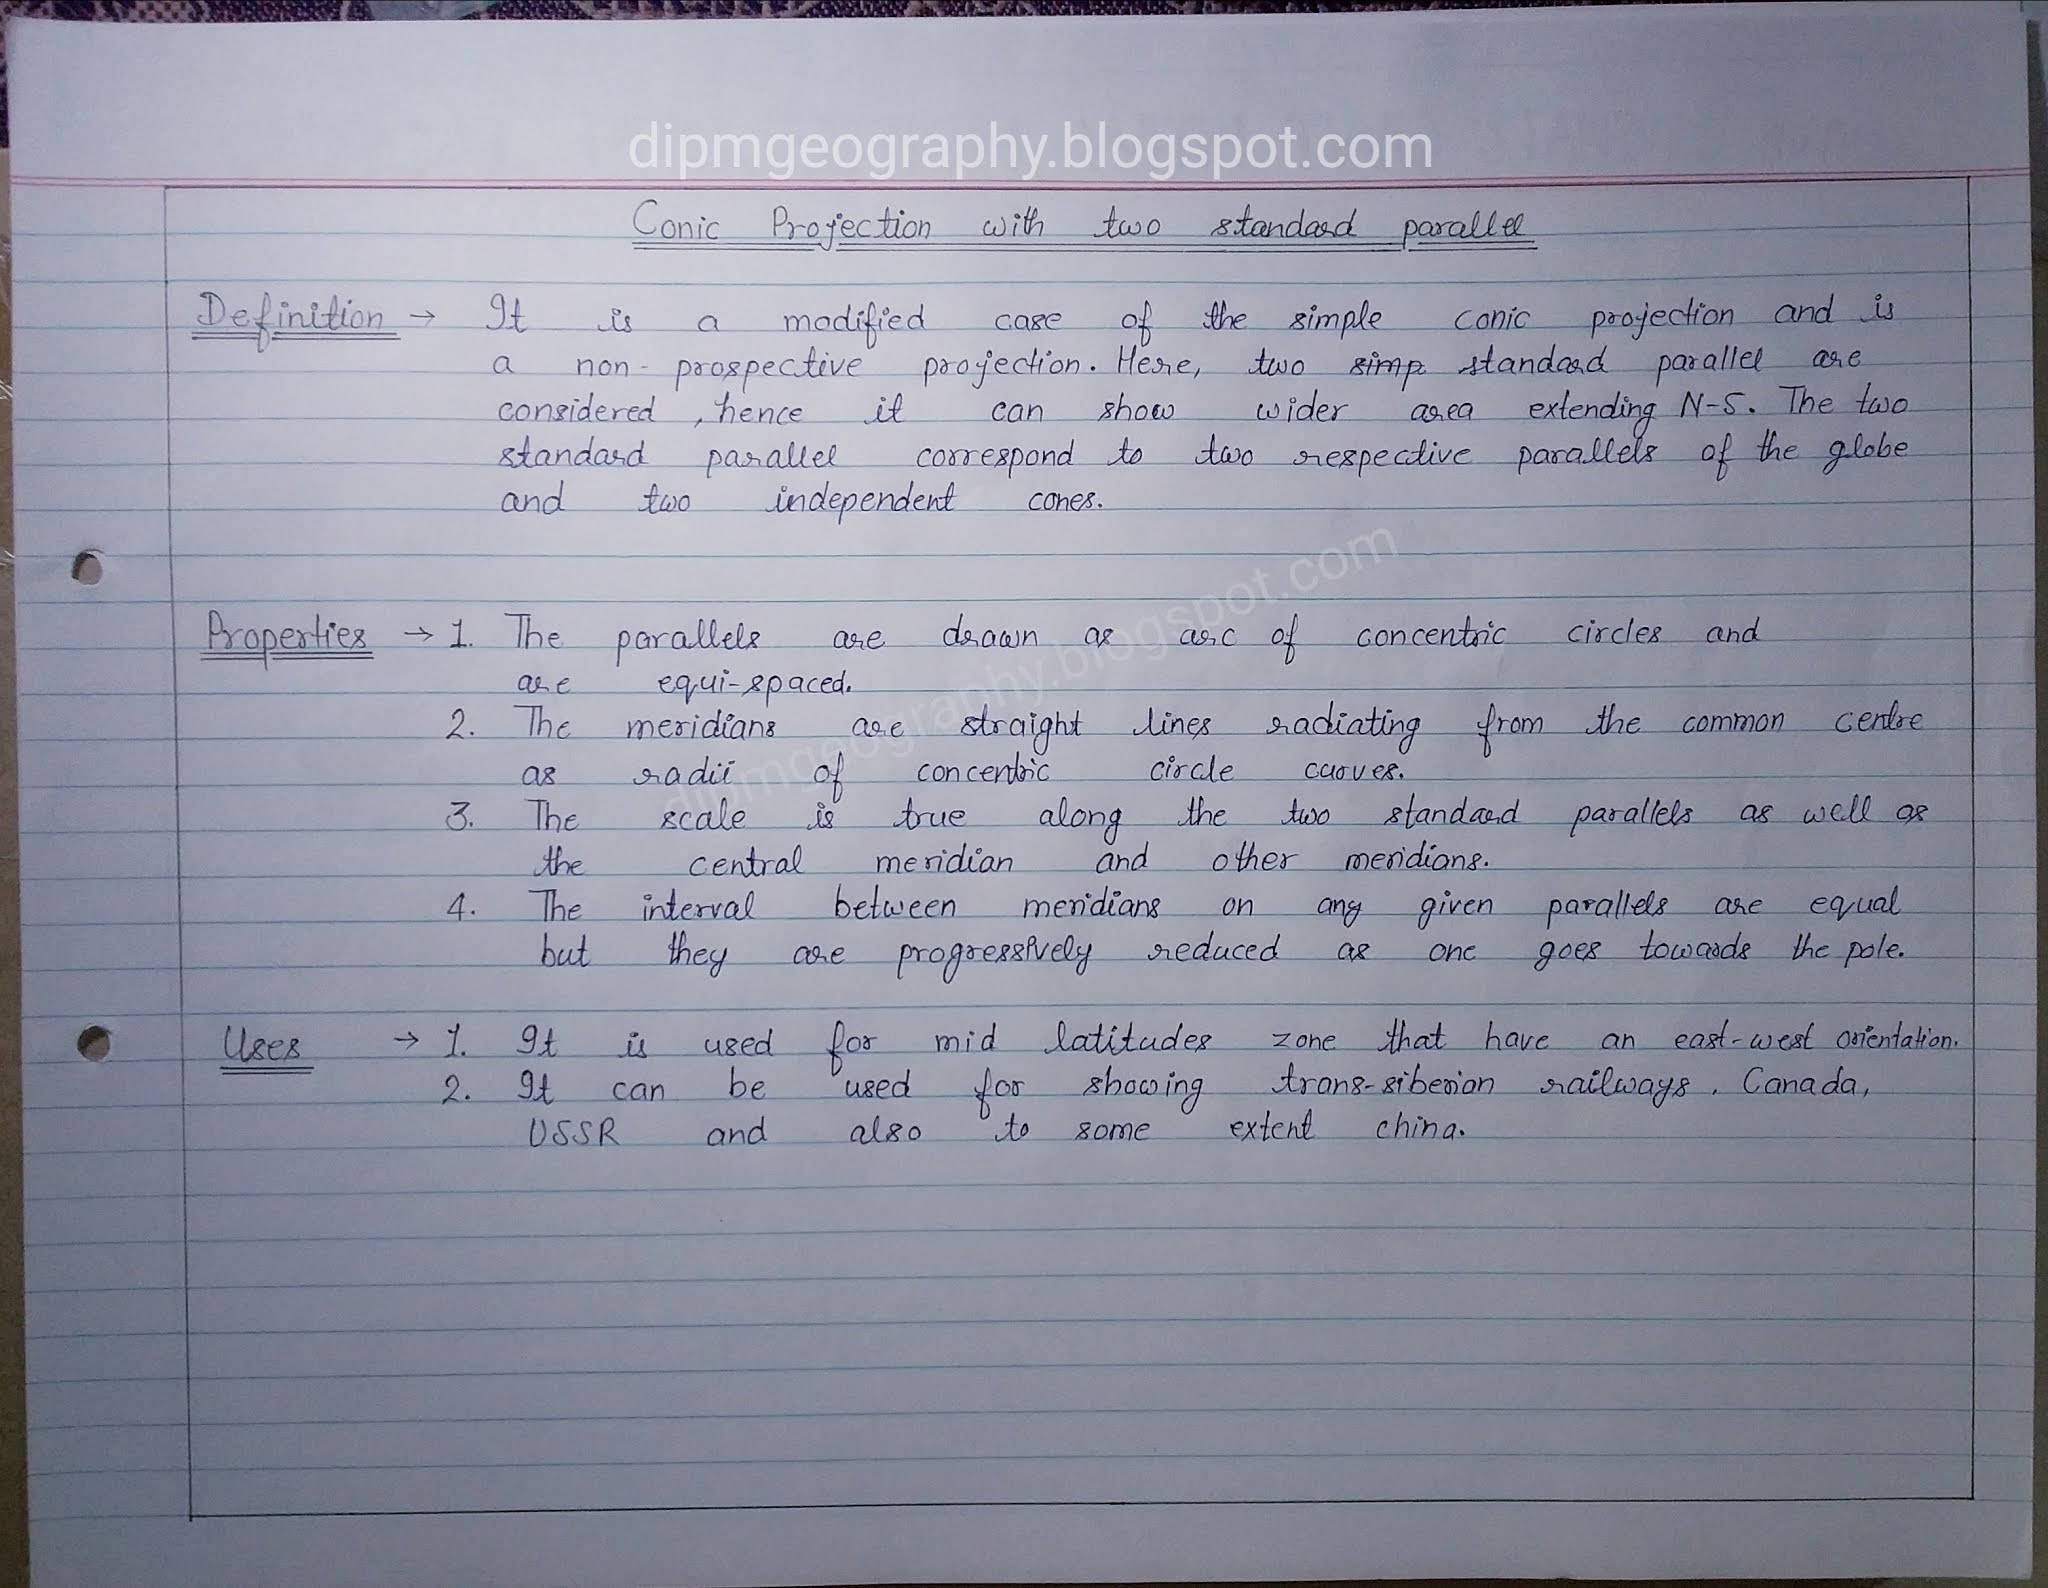 dipmgeography.blogspot.com
Conic Projection with two standard parallel
Definition → It is a modified case of the simple conic projection and is
a non-prospective projection. Here, two simp standard parallel are
considered, hence it can show wider area extending N-S. The two
standard parallel correspond to two respective parallels of the globe
and two independent cones.
dipmgeography.blogspot.com
Properties → 1. The parallels are drawn as arc of concentric circles and
are equi-spaced.
2. The meridians are straight lines radiating from the common centre
as radii of concentric circle curves.
3. The scale is true along the two standard parallels as well as
the central meridian and other meridians.
4. The interval between meridians on any given parallels are equal
but they are progressively reduced as one goes towards the pole.
Uses → 1. It is used for mid latitudes zone that have an east-west orientation.
2. It can be used for showing trans-siberian railways, Canada,
USSR and also to some extent china.